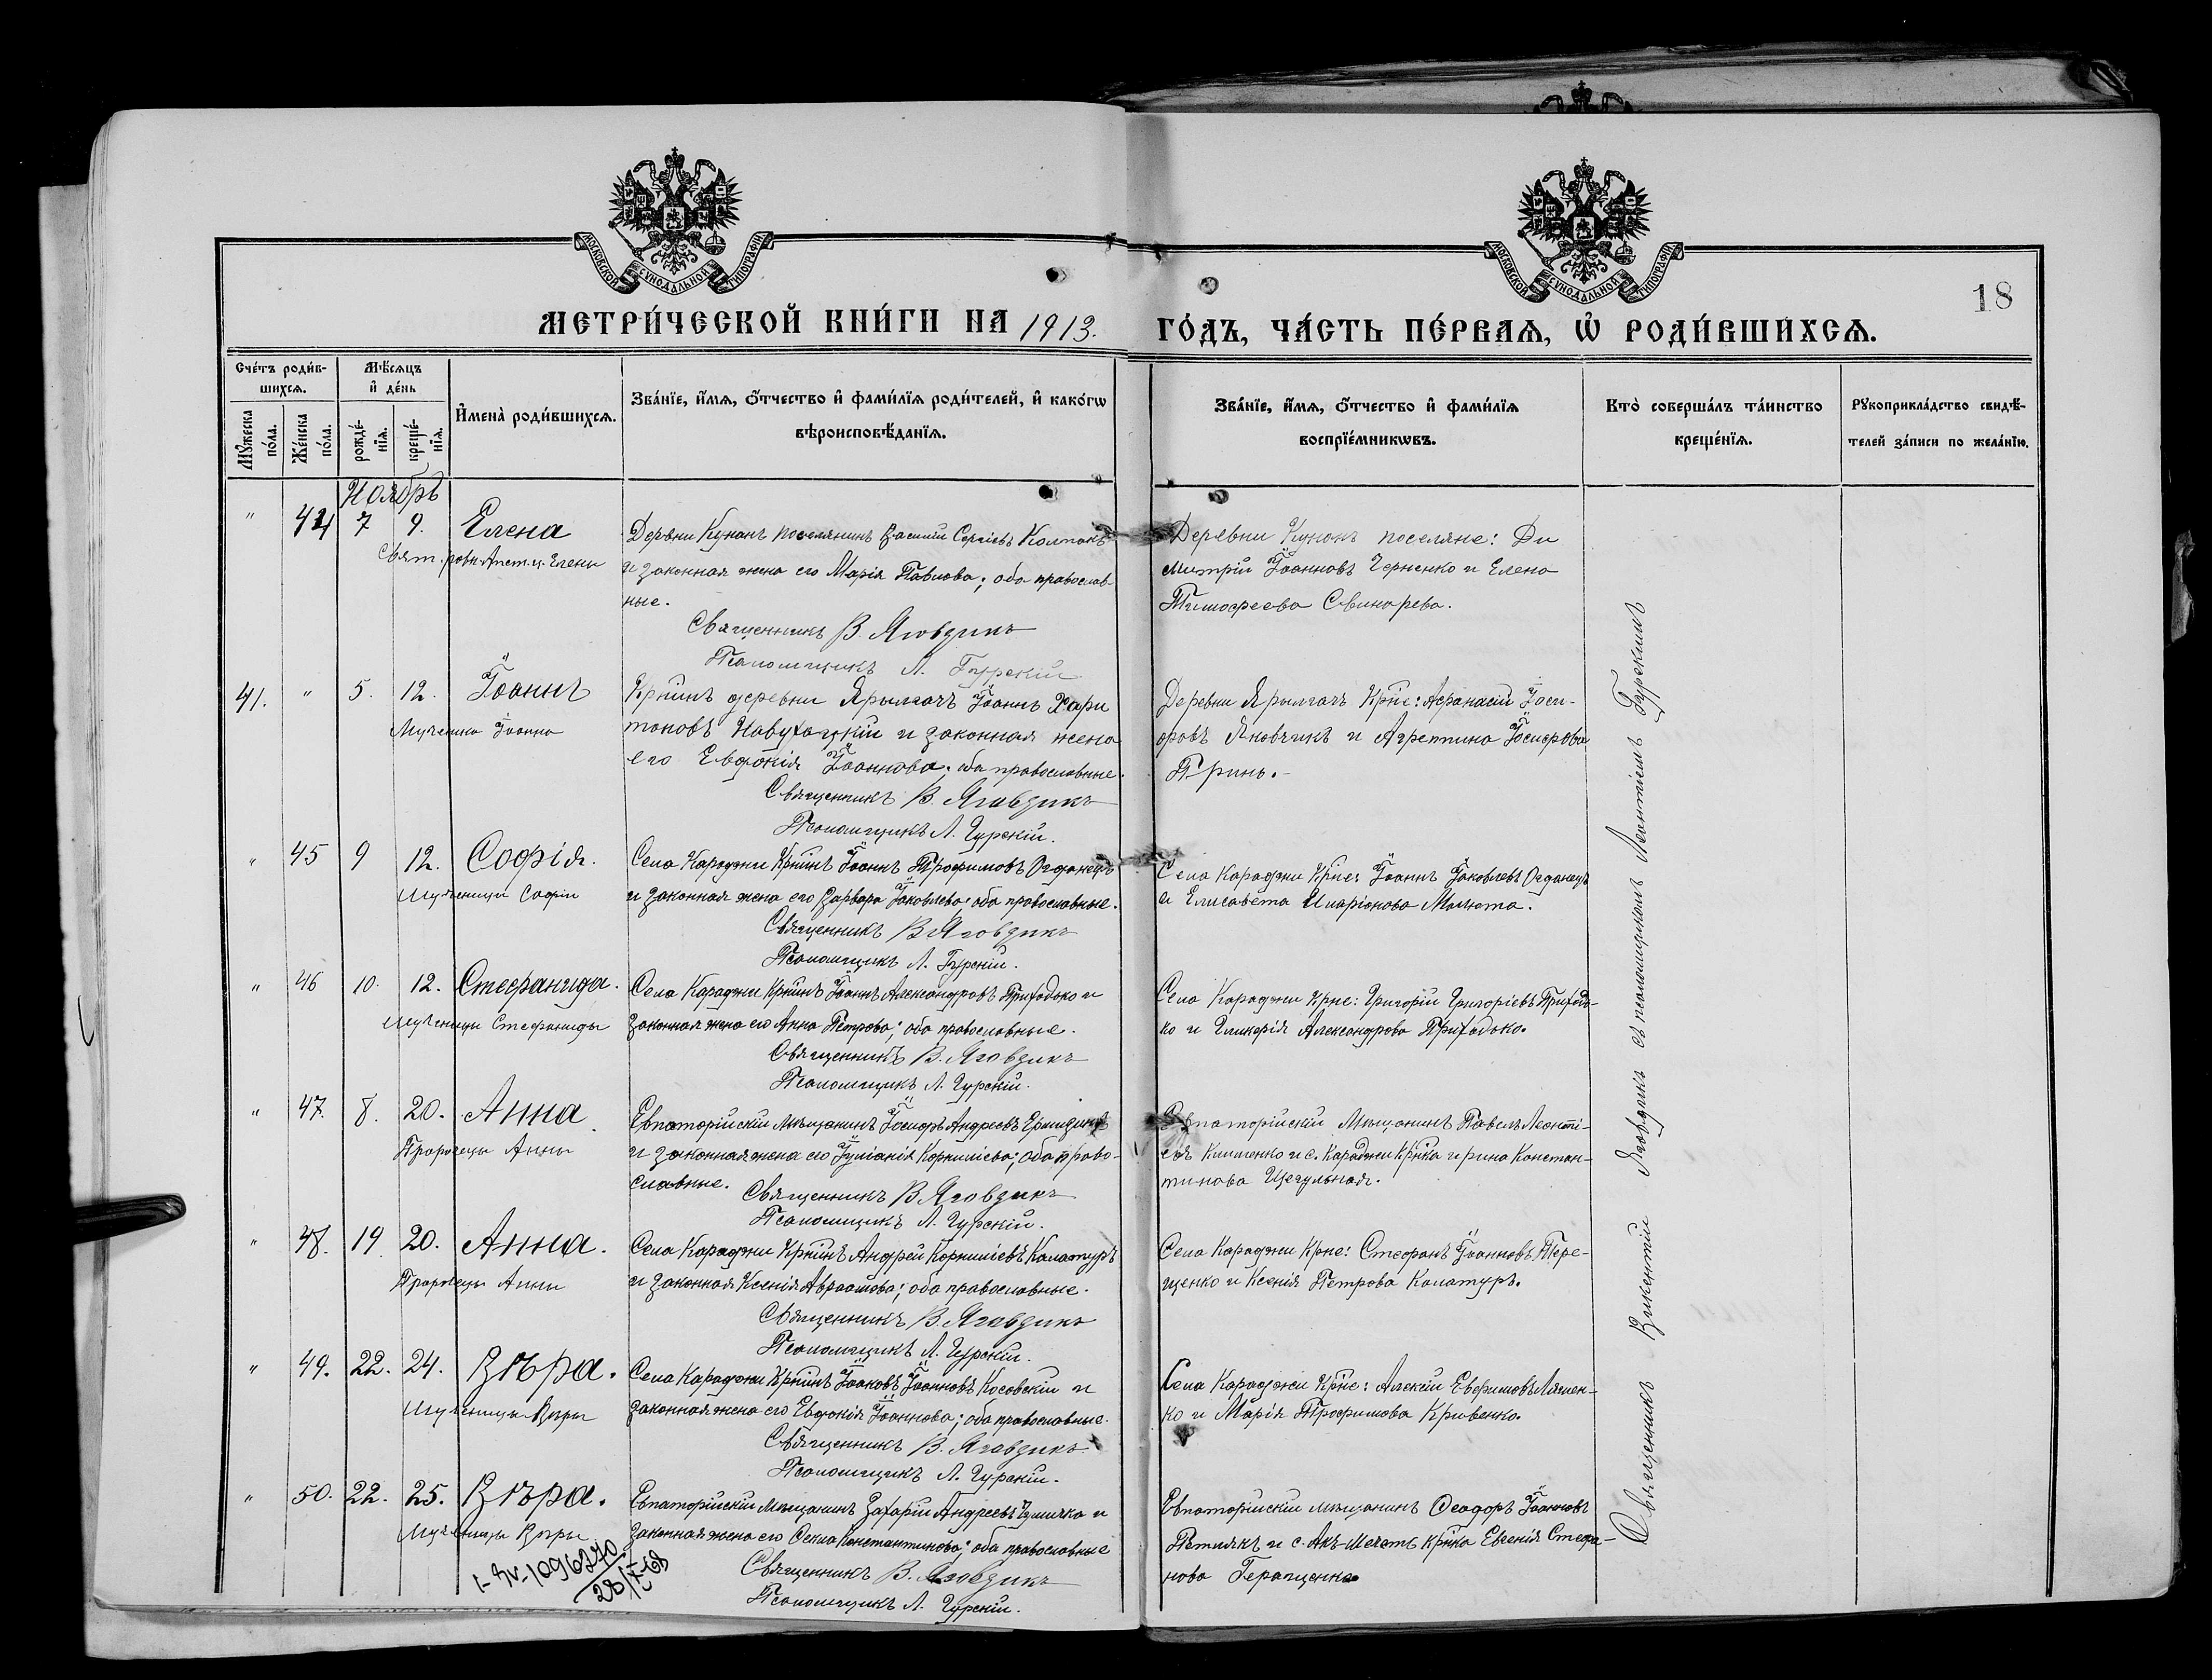 МОСКОВСКОЙ СѴНОДАЛЬНОЙ ТИПОГРАФІИ
МОСКОВСКОЙ СѴНОДАЛЬНОЙ ТИПОГРАФІИ
18
МЕТРИ́ЧЕСКОЙ КНИ́ГИ НА 1913.
ГО́ДЪ, ЧА́СТЬ ПЕ́РВАѦ, Ѡ҆ РОДИ́ВШИХСѦ.
Сче́тъ роди́в-
шихсѧ.
Мꙋ́жеска по́ла.
Же́нска по́ла.
Мѣ́сѧцъ
и҆ де́нь
рожде́-нїѧ.
креще́-нїѧ.
И҆мена̀ роди́вшихсѧ.
Зва́нїе, и҆́мѧ, ѻ҆́тчество и҆ фами́лїѧ роди́телей, и҆ како́гѡ
вѣроисповѣ́данїѧ.
Зва́нїе, и҆́мѧ, ѻ҆́тчество и҆ фами́лїѧ
воспрїе́мникѡвъ.
Кто̀ соверша́лъ та́инство
креще́нїѧ.
Рꙋкоприкла́дство свидѣ́-
телей за́писи по жела́нїю.
Ноябрь
" 44 7 9. Елена
Свят. равн. Апст. ц. Елены
Деревни Кунанъ поселянинъ Василій Сергіевъ Колпакъ
и законная жена его Марія Павлова; оба православ-
ные.
Священникъ В. Яговдикъ
Псаломщикъ Л. Гурскій
Деревни Кунанъ поселяне: Ди
митрій Іоанновъ Черненко и Елена
Тимофеева Свинарева.
41. " 5. 12. Іоаннъ
Мученика Іоанна
Крнинъ деревни Ярылгачъ Іоаннъ Хари
тоновъ и законная жена
его Евдокія Іоаннова; оба православные.
Священникъ В. Яговдикъ
Псаломщикъ Л. Гурскій.
Деревни Ярылгачъ Крне: Афанасій Іоси-
фовъ Яновчикъ и Агреппина Іосифова
Гринь.-
" 45 9 12. Софія.
Мученицы Софіи
Села Караджи Крнинъ Іоаннъ Трофимовъ Огданецъ
и законная жена его Варвара Іаковлева; оба православные.
Священникъ В. Яговдикъ
Псаломщикъ Л. Гурскій.
Села Караджи Крне: Іоаннъ Іаковлевъ Огданецъ
и Елисавета Иларіонова Малюта.
" 46 10. 12. Стефанида.
Мученицы Стефаниды
Села Караджи Крнинъ Іоаннъ Александровъ Приходько и
законная жена его Анна Петрова; оба православные.
Священникъ В. Яговдикъ
Псаломщикъ Л. Гурскій.
Села Караджи Крне: Григорій Григоріевъ Приходь-
ко и Гликерія Александрова Приходько.
" 47. 8. 20. Анна.
Пророчицы Анны
Евпаторійскій мѣщанинъ Іосифъ Андреевъ
и законная жена его Іуліанія Корниліева; оба право-
славные.
Священникъ В. Яговдикъ
Псаломщикъ Л. Гурскій.
Евпаторійскій мѣщанинъ Павелъ Леонті-
евъ Клименко и с. Караджи Крнка Ирина Констан-
тинова Щегульная.
" 48. 19. 20. Анна.
Пророчицы Анны
Села Караджи Крнинъ Андрей Корниліевъ Калатуръ
и законная Ксенія Авраамова; оба православные.
Священникъ В. Яговдикъ
Псаломщикъ Л. Гурскій.
Села Караджи Крне: Стефанъ Іоанновъ Тере-
щенко и Ксенія Петрова Калатуръ.
" 49. 22. 24. Вѣра.
Мученицы Вѣры
Села Караджи Крнинъ Іаковъ Іоанновъ Косовскій и
законная жена его Евдокія Іоаннова; оба православные.
Священникъ В. Яговдикъ
Псаломщикъ Л. Гурскій.
Села Караджи Крне: Алексій Евфимовъ Ляшен-
ко и Марія Трофимова Кривенко.
" 50. 22. 25. Вѣра.
Мученицы Вѣры
Евпаторійскій мѣщанинъ Захарій Андреевъ и
законная жена его Фекла Константинова; оба православные
Священникъ В. Яговдикъ
Псаломщикъ Л. Гурскій.
Евпаторійскій мѣщанинъ Феодоръ Іоанновъ
Петлякъ и с. Акъ-Мечеть крнка Евгенія Стефа-
нова Геращенко
Священникъ Викентій Яговдикъ съ псаломщикомъ Леонтіемъ Гурскимъ
1096270